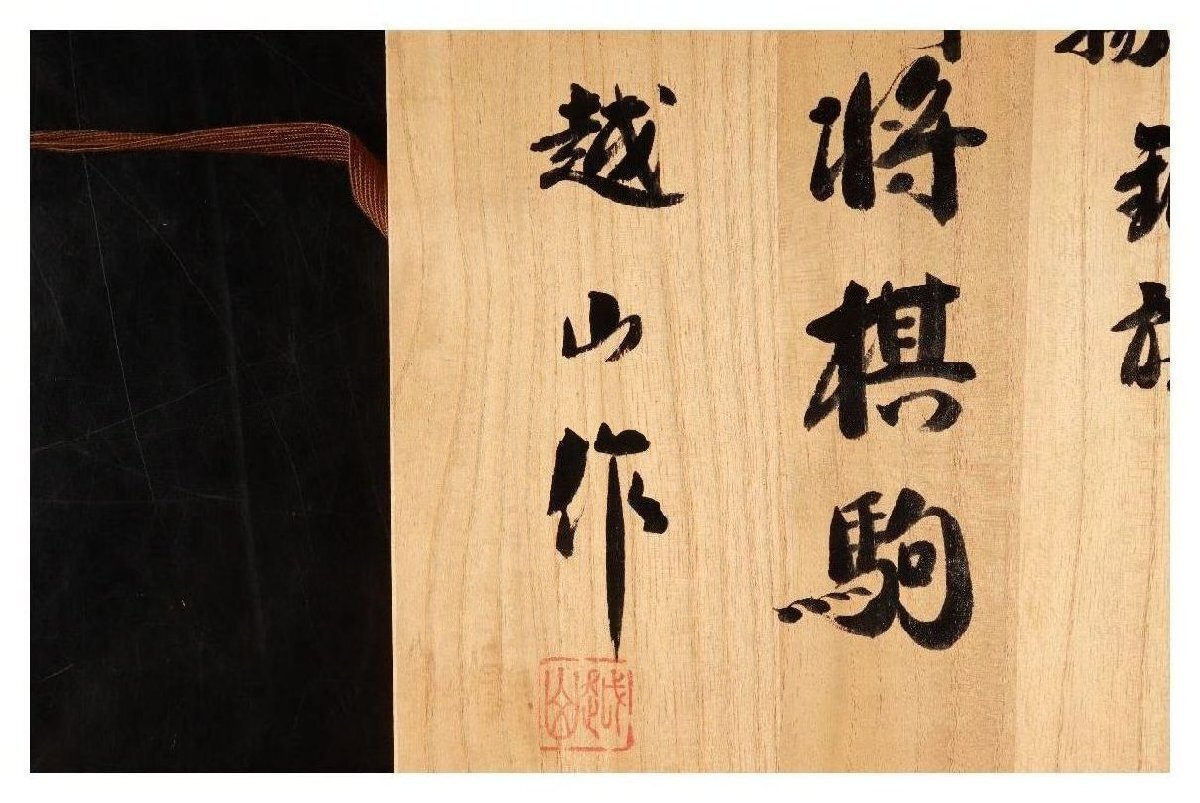 将棋駒
越山作
越山